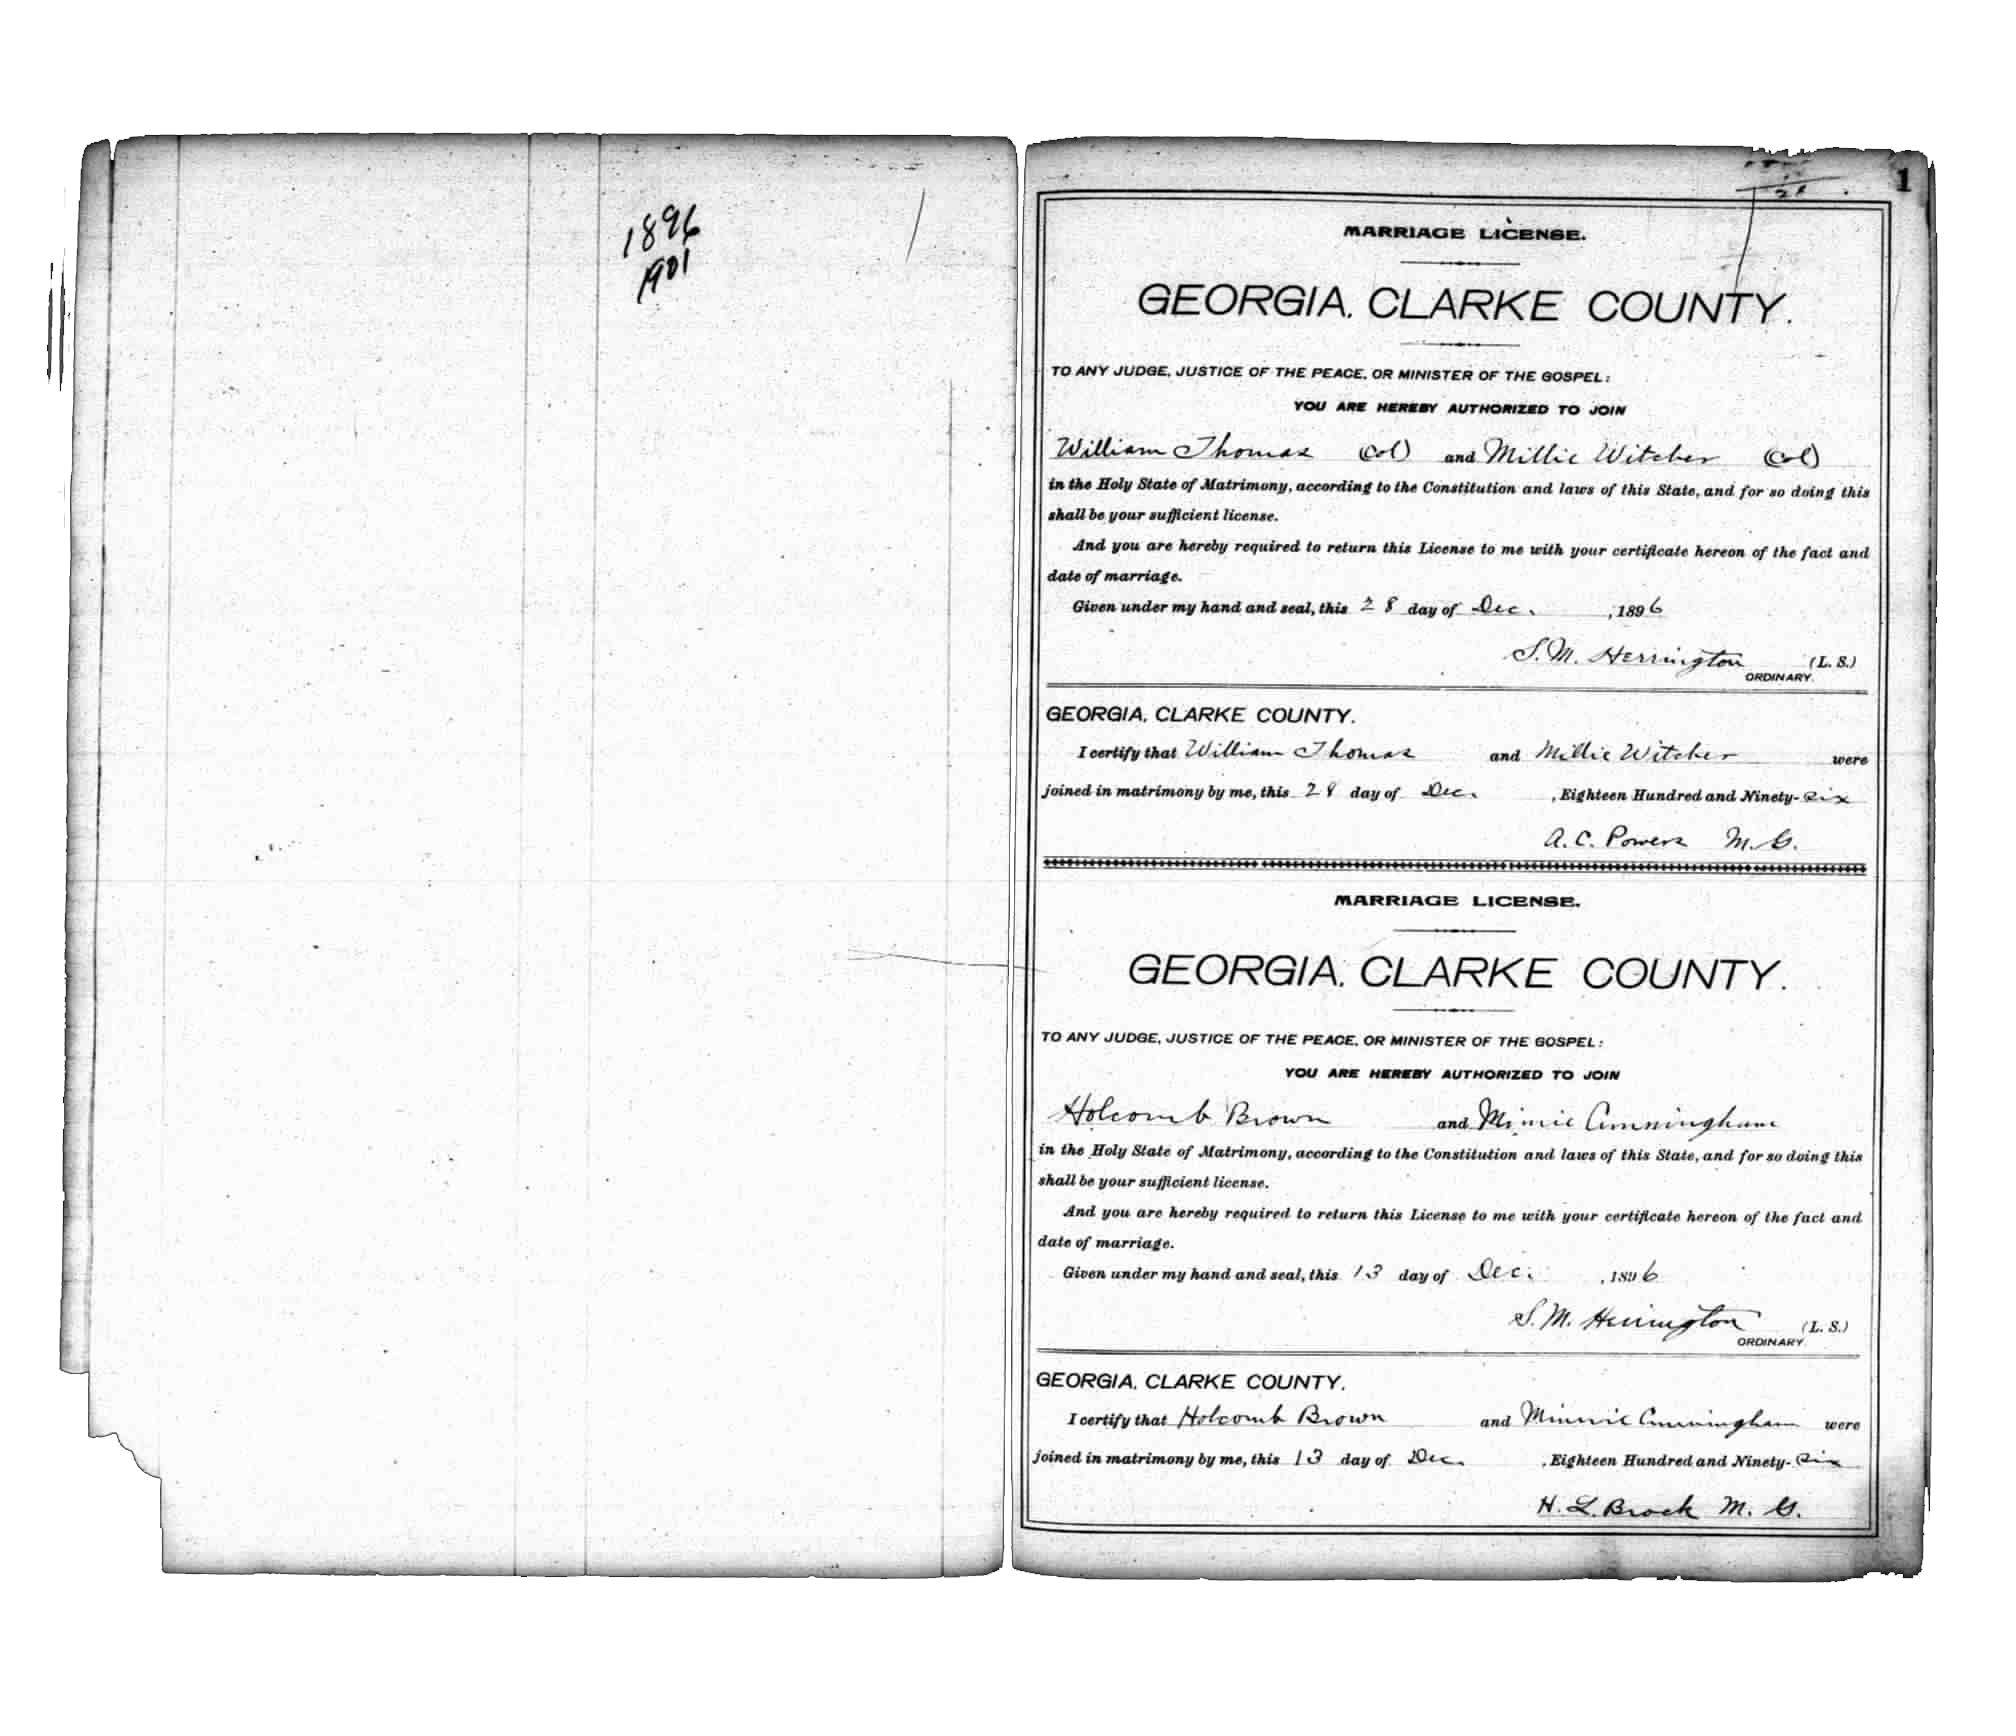 1896
1901
1
MARRIAGE LICENSE.
GEORGIA, CLARKE COUNTY.
TO ANY JUDGE, JUSTICE OF THE PEACE, OR MINISTER OF THE GOSPEL:
YOU ARE HEREBY AUTHORIZED TO JOIN
William Thomas (Col) and Millie Witcher (Col)
in the Holy State of Matrimony, according to the Constitution and laws of this State, and for so doing this
shall be your sufficient license.
And you are hereby required to return this License to me with your certificate hereon of the fact and
date of marriage.
Given under my hand and seal, this 28 day of Dec. , 1896
S. M. Herrington (L. S.)
ORDINARY.
GEORGIA, CLARKE COUNTY.
I certify that William Thomas and Millie Witcher were
joined in matrimony by me, this 28 day of Dec. , Eighteen Hundred and Ninety-six
A. C. Powers M. G.
MARRIAGE LICENSE.
GEORGIA, CLARKE COUNTY.
TO ANY JUDGE, JUSTICE OF THE PEACE, OR MINISTER OF THE GOSPEL:
YOU ARE HEREBY AUTHORIZED TO JOIN
Holcomb Brown and Minnie Cunningham
in the Holy State of Matrimony, according to the Constitution and laws of this State, and for so doing this
shall be your sufficient license.
And you are hereby required to return this License to me with your certificate hereon of the fact and
date of marriage.
Given under my hand and seal, this 13 day of Dec. , 1896
S. M. Herrington (L. S.)
ORDINARY.
GEORGIA, CLARKE COUNTY.
I certify that Holcomb Brown and Minnie Cunningham were
joined in matrimony by me, this 13 day of Dec. , Eighteen Hundred and Ninety-six
H. L. Brock M. G.